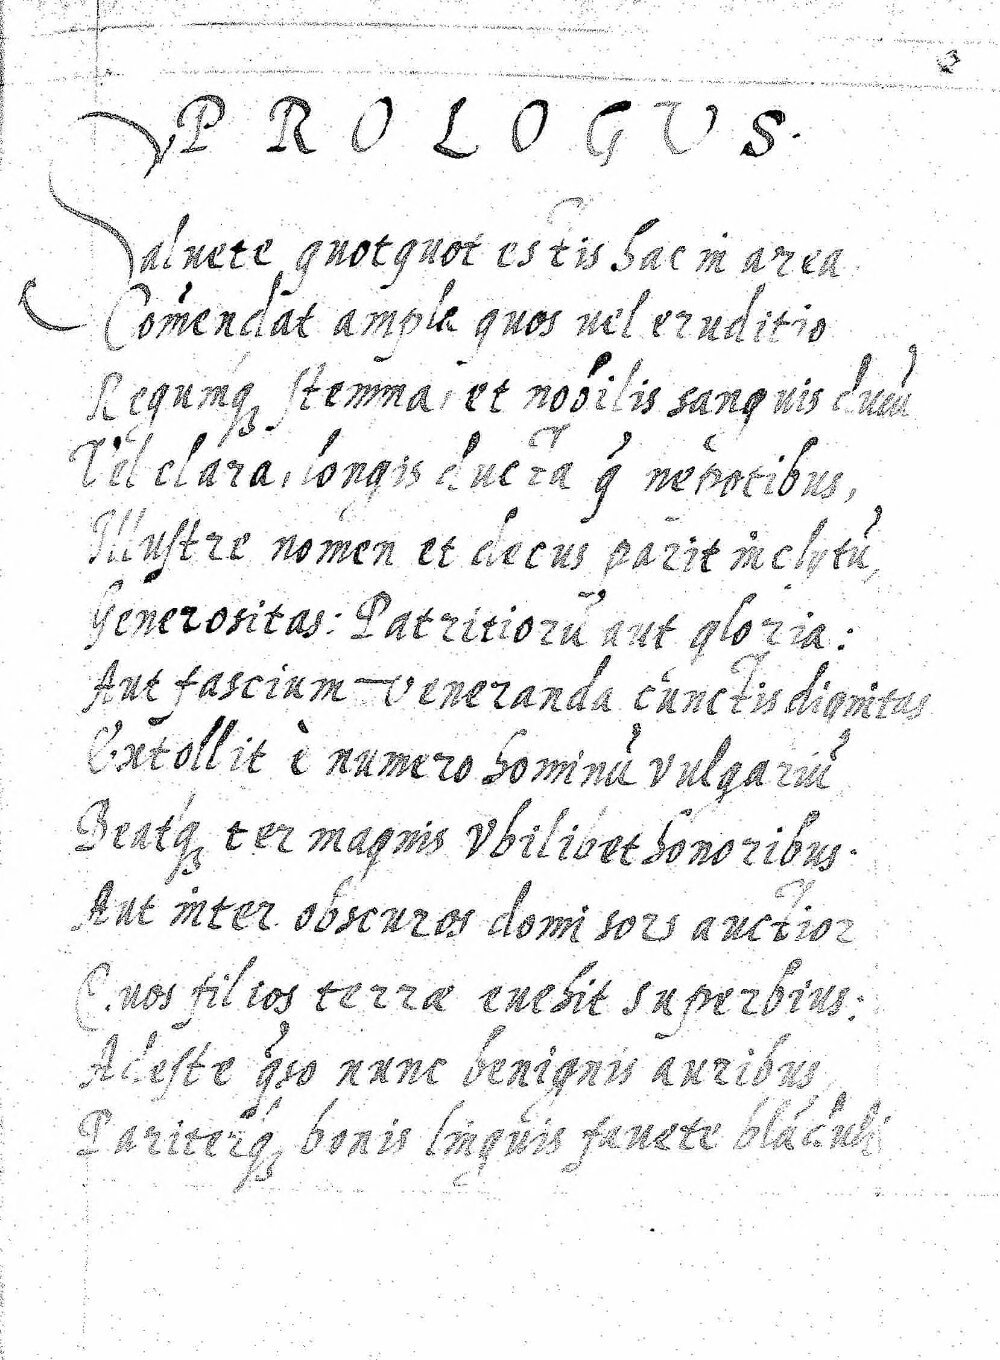 PROLOGUS.
Saluete quotquot estis hac in area
Com̄endat ampla quos uel eruditio
Regumq; stemma, et nobilis sanguis ducū
Vel clara, longis ducta q̄ nepotibus,
Illustre nomen et decus parit inclytū,
Generositas: Patritiorū aut gloria:
Aut fascium veneranda cunctis dignitas
Extollit è numero hominū vulgariū
Beatq; ter magnis Vbilibet honoribus.
Aut inter obscuros domi sors auctior
Quos filios terræ euehit superbius:
Adeste q̄so nunc benignis auribus,
Pariterq; bonis linguis fauete